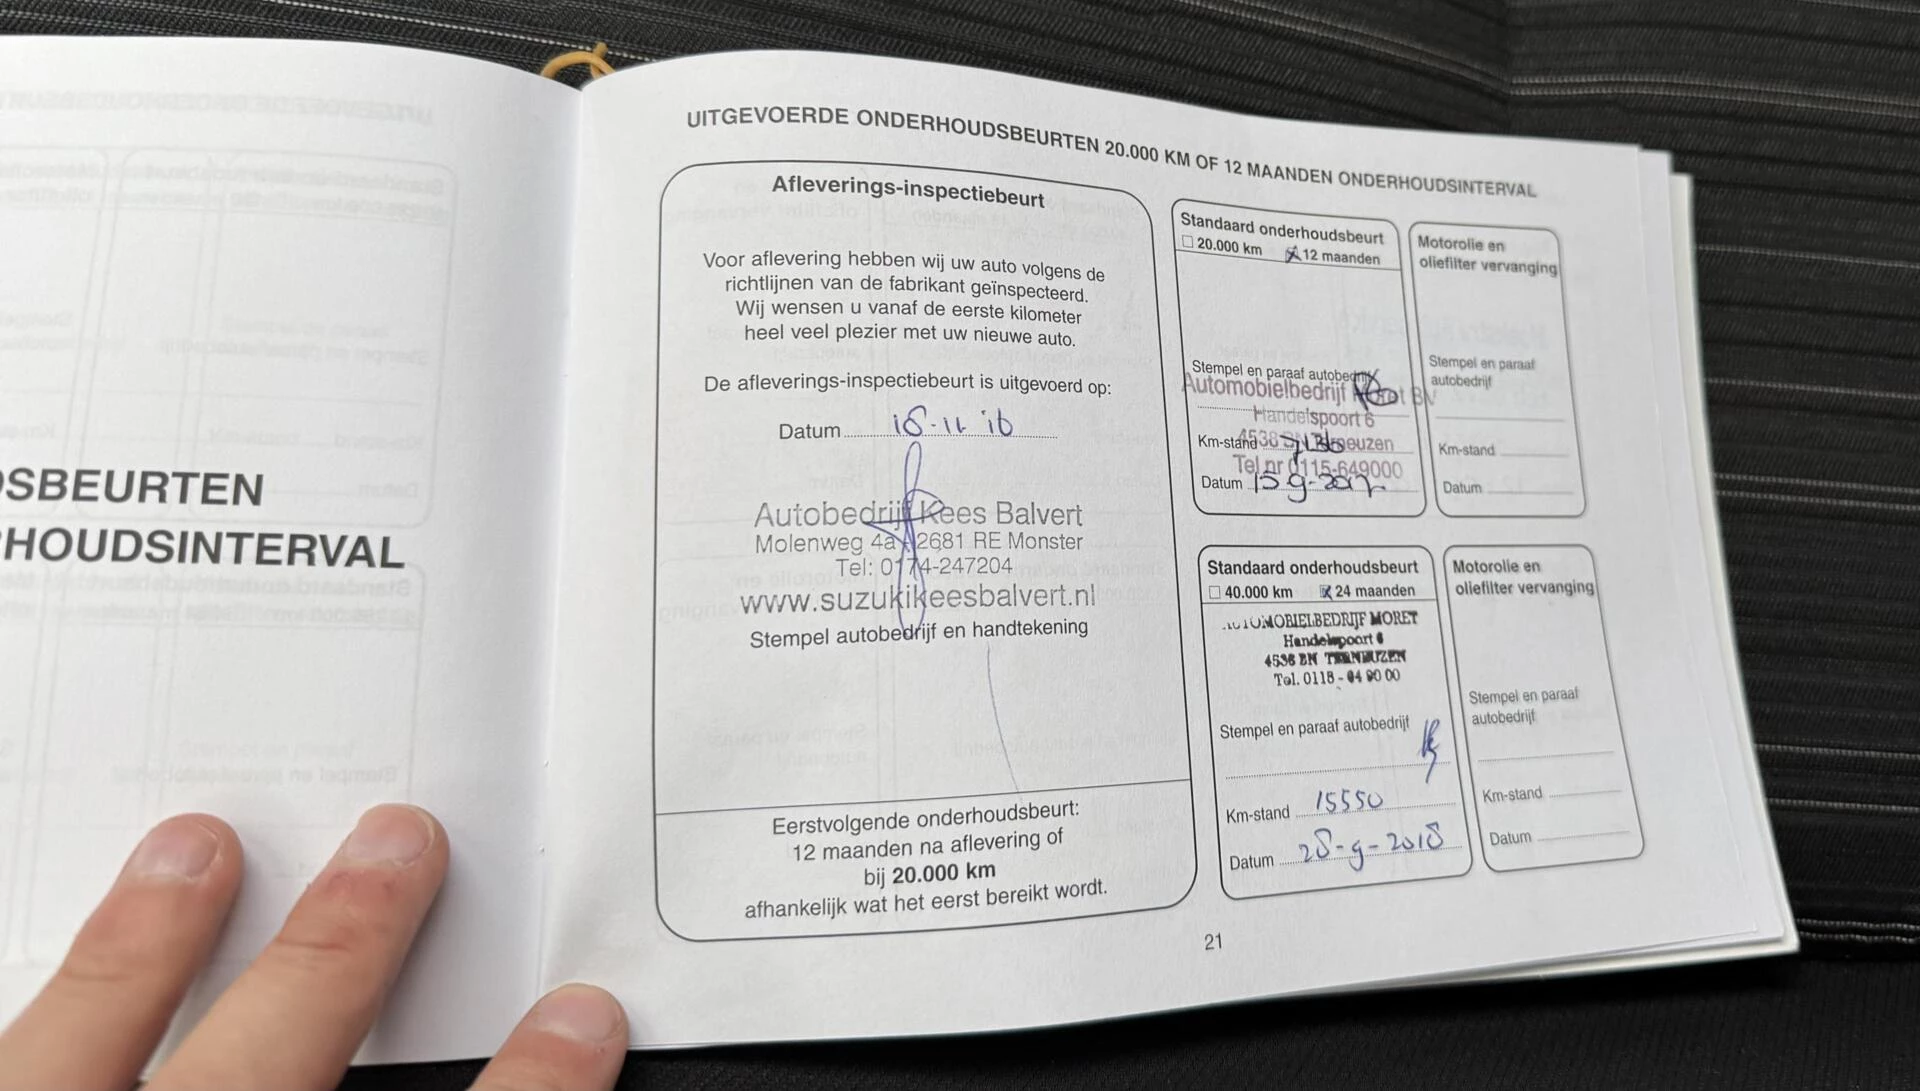 SBEURTEN
HOUDSINTERVAL
UITGEVOERDE ONDERHOUDSBEURTEN 20.000 KM OF 12 MAANDEN ONDERHOUDSINTERVAL
Afleverings-inspectiebeurt
Voor aflevering hebben wij uw auto volgens de
richtlijnen van de fabrikant geïnspecteerd.
Wij wensen u vanaf de eerste kilometer
heel veel plezier met uw nieuwe auto.
De afleverings-inspectiebeurt is uitgevoerd op:
Datum
Autobedrijf Kees Balvert
Molenweg 4a - 2681 RE Monster
Tel: 0174-247204
www.suzukikeesbalvert.nl
Stempel autobedrijf en handtekening
Eerstvolgende onderhoudsbeurt:
12 maanden na aflevering of
bij 20.000 km
afhankelijk wat het eerst bereikt wordt.
Standaard onderhoudsbeurt
20.000 km 12 maanden
Stempel en paraaf autobedrijf
Automobielbedrijf Moret BV
Handelspoort 6
Km-stand
4538 BN Terneuzen
Tel nr 0115-649000
Datum 15-9-2017
Motorolie en
oliefilter vervanging
Stempel en paraaf
autobedrijf
Km-stand
Datum
Standaard onderhoudsbeurt
40.000 km 24 maanden
AUTOMOBIELBEDRIJF MORET
Handelspoort 6
4538 BN TERNEUZEN
Stempel en paraaf autobedrijf
Km-stand 15550
Datum 28-9-2018
Motorolie en
oliefilter vervanging
Stempel en paraaf
autobedrijf
Km-stand
Datum
21